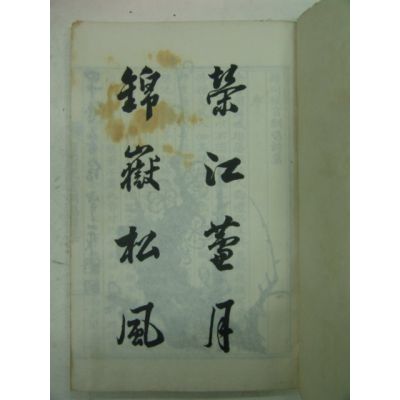 榮江蘆月
錦嶽松風